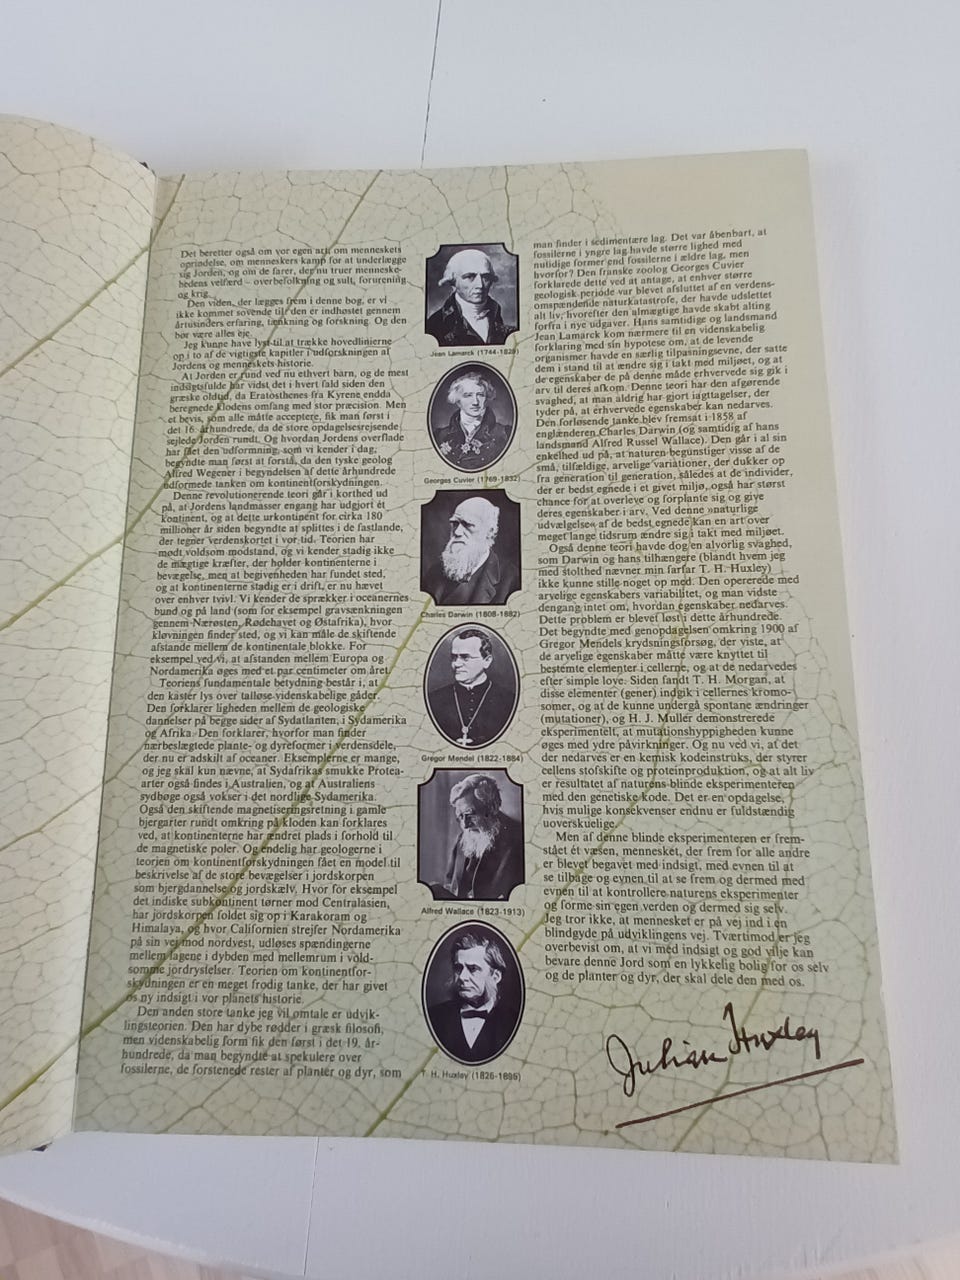 Det beretter også om vor egen art, om menneskets
oprindelse, om menneskers kamp for at underlægge
sig Jorden, og om de farer, der nu truer menneske-
hedens velfærd – overbefolkning og sult, forurening
og krig.
Den viden, der lægges frem i denne bog, er vi
ikke kommet sovende til: den er indhøstet gennem
årtusinders erfaring, tænkning og forskning. Og den
bør være alles eje.
Jeg kunne have lyst til at trække hovedlinierne
op i to af de vigtigste kapitler i udforskningen af
Jordens og menneskets historie.
At Jorden er rund ved nu ethvert barn, og de mest
indsigtsfulde har vidst det i hvert fald siden den
græske oldtid, da Eratosthenes fra Kyrene endda
beregnede klodens omfang med stor præcision. Men
et bevis, som alle måtte acceptere, fik man først i
det 16. århundrede, da de store opdagelsesrejsende
sejlede Jorden rundt. Og hvordan Jordens overflade
har fået den udformning, som vi kender i dag,
begyndte man først at forstå, da den tyske geolog
Alfred Wegener i begyndelsen af dette århundrede
udformede tanken om kontinentforskydningen.
Denne revolutionerende teori går i korthed ud
på, at Jordens landmasser engang har udgjort ét
kontinent, og at dette urkontinent for cirka 180
millioner år siden begyndte at splittes i de fastlande,
der tegner verdenskortet i vor tid. Teorien har
mødt voldsom modstand, og vi kender stadig ikke
de mægtige kræfter, der holder kontinenterne i
bevægelse, men at begivenheden har fundet sted,
og at kontinenterne stadig er i drift, er nu hævet
over enhver tvivl. Vi kender de sprækker i oceanernes
bund og på land (som for eksempel gravsænkningen
gennem Nærøsten, Rødehavet og Østafrika), hvor
kløvningen finder sted, og vi kan måle de skiftende
afstande mellem de kontinentale blokke. For
eksempel ved vi, at afstanden mellem Europa og
Nordamerika øges med et par centimeter om året.
Teoriens fundamentale betydning består i, at
den kaster lys over talløse videnskabelige gåder.
Den forklarer ligheden mellem de geologiske
dannelser på begge sider af Sydatlanten, i Sydamerika
og Afrika. Den forklarer, hvorfor man finder
nærbeslægtede plante- og dyreformer i verdensdele,
der nu er adskilt af oceaner. Eksemplerne er mange,
og jeg skal kun nævne, at Sydafrikas smukke Protea-
arter også findes i Australien, og at Australiens
sydbøge også vokser i det nordlige Sydamerika.
Også den skiftende magnetiseringsretning i gamle
bjergarter rundt omkring på kloden kan forklares
ved, at kontinenterne har ændret plads i forhold til
de magnetiske poler. Og endelig har geologerne i
teorien om kontinentforskydningen fået en model til
beskrivelse af de store bevægelser i jordskorpen
som bjergdannelse og jordskælv. Hvor for eksempel
det indiske subkontinent tørner mod Centralasien,
har jordskorpen foldet sig op i Karakoram og
Himalaya, og hvor Californien strejfer Nordamerika
på sin vej mod nordvest, udløses spændingerne
mellem lagene i dybden med mellemrum i vold-
somme jordrystelser. Teorien om kontinentfor-
skydningen er en meget frodig tanke, der har givet
os ny indsigt i vor planets historie.
Den anden store tanke jeg vil omtale er udvik-
lingsteorien. Den har dybe rødder i græsk filosofi,
men videnskabelig form fik den først i det 19. år-
hundrede, da man begyndte at spekulere over
fossilerne, de forstenede rester af planter og dyr, som
Jean Lamarck (1744-1829)
Georges Cuvier (1769-1832)
Charles Darwin (1808-1882)
Gregor Mendel (1822-1884)
Alfred Wallace (1823-1913)
T. H. Huxley (1826-1895)
man finder i sedimentære lag. Det var åbenbart, at
fossilerne i yngre lag havde større lighed med
nulidige former end fossilerne i ældre lag, men
hvorfor? Den franske zoolog Georges Cuvier
forklarede dette ved at antage, at enhver større
geologisk periode var blevet afsluttet af en verdens-
omspændende naturkatastrofe, der havde udslettet
alt liv, hvorefter den almægtige havde skabt alting
forfra i nye udgaver. Hans samtidige og landsmand
Jean Lamarck kom nærmere til en videnskabelig
forklaring med sin hypotese om, at de levende
organismer havde en særlig tilpasningsevne, der satte
dem i stand til at ændre sig i takt med miljøet, og at
de egenskaber de på denne måde erhvervede sig gik i
arv til deres afkom. Denne teori har den afgørende
svaghed, at man aldrig har gjort iagttagelser, der
tyder på, at erhvervede egenskaber kan nedarves.
Den forløsende tanke blev fremsat i 1858 af
englænderen Charles Darwin (og samtidig af hans
landsmand Alfred Russel Wallace). Den går i al sin
enkelhed ud på, at naturen begunstiger visse af de
små, tilfældige, arvelige variationer, der dukker op
fra generation til generation, således at de individer,
der er bedst egnede i et givet miljø, også har størst
chance for at overleve og forplante sig og give
deres egenskaber i arv. Ved denne »naturlige
udvælgelse« af de bedst egnede kan en art over
meget lange tidsrum ændre sig i takt med miljøet.
Også denne teori havde dog en alvorlig svaghed,
som Darwin og hans tilhængere (blandt hvem jeg
med stolthed nævner min farfar T. H. Huxley)
ikke kunne stille noget op med. Den opererede med
arvelige egenskabers variabilitet, og man vidste
dengang intet om, hvordan egenskaber nedarves.
Dette problem er blevet løst i dette århundrede.
Det begyndte med genopdagelsen omkring 1900 af
Gregor Mendels krydsningsforsøg, der viste, at
de arvelige egenskaber måtte være knyttet til
bestemte elementer i cellerne, og at de nedarvedes
efter simple love. Siden fandt T. H. Morgan, at
disse elementer (gener) indgik i cellernes kromo-
somer, og at de kunne undergå spontane ændringer
(mutationer), og H. J. Muller demonstrerede
eksperimentelt, at mutationshyppigheden kunne
øges med ydre påvirkninger. Og nu ved vi, at det
der nedarves er en kemisk kodeinstruks, der styrer
cellens stofskifte og proteinproduktion, og at alt liv
er resultatet af naturens blinde eksperimenteren
med den genetiske kode. Det er en opdagelse,
hvis mulige konsekvenser endnu er fuldstændig
uoverskuelige.
Men af denne blinde eksperimenteren er frem-
stået ét væsen, mennesket, der frem for alle andre
er blevet begavet med indsigt, med evnen til at
se tilbage og evnen til at se frem og dermed med
evnen til at kontrollere naturens eksperimenter
og forme sin egen verden og dermed sig selv.
Jeg tror ikke, at mennesket er på vej ind i en
blindgyde på udviklingens vej. Tværtimod er jeg
overbevist om, at vi med indsigt og god vilje kan
bevare denne Jord som en lykkelig bolig for os selv
og de planter og dyr, der skal dele den med os.
Julian Huxley